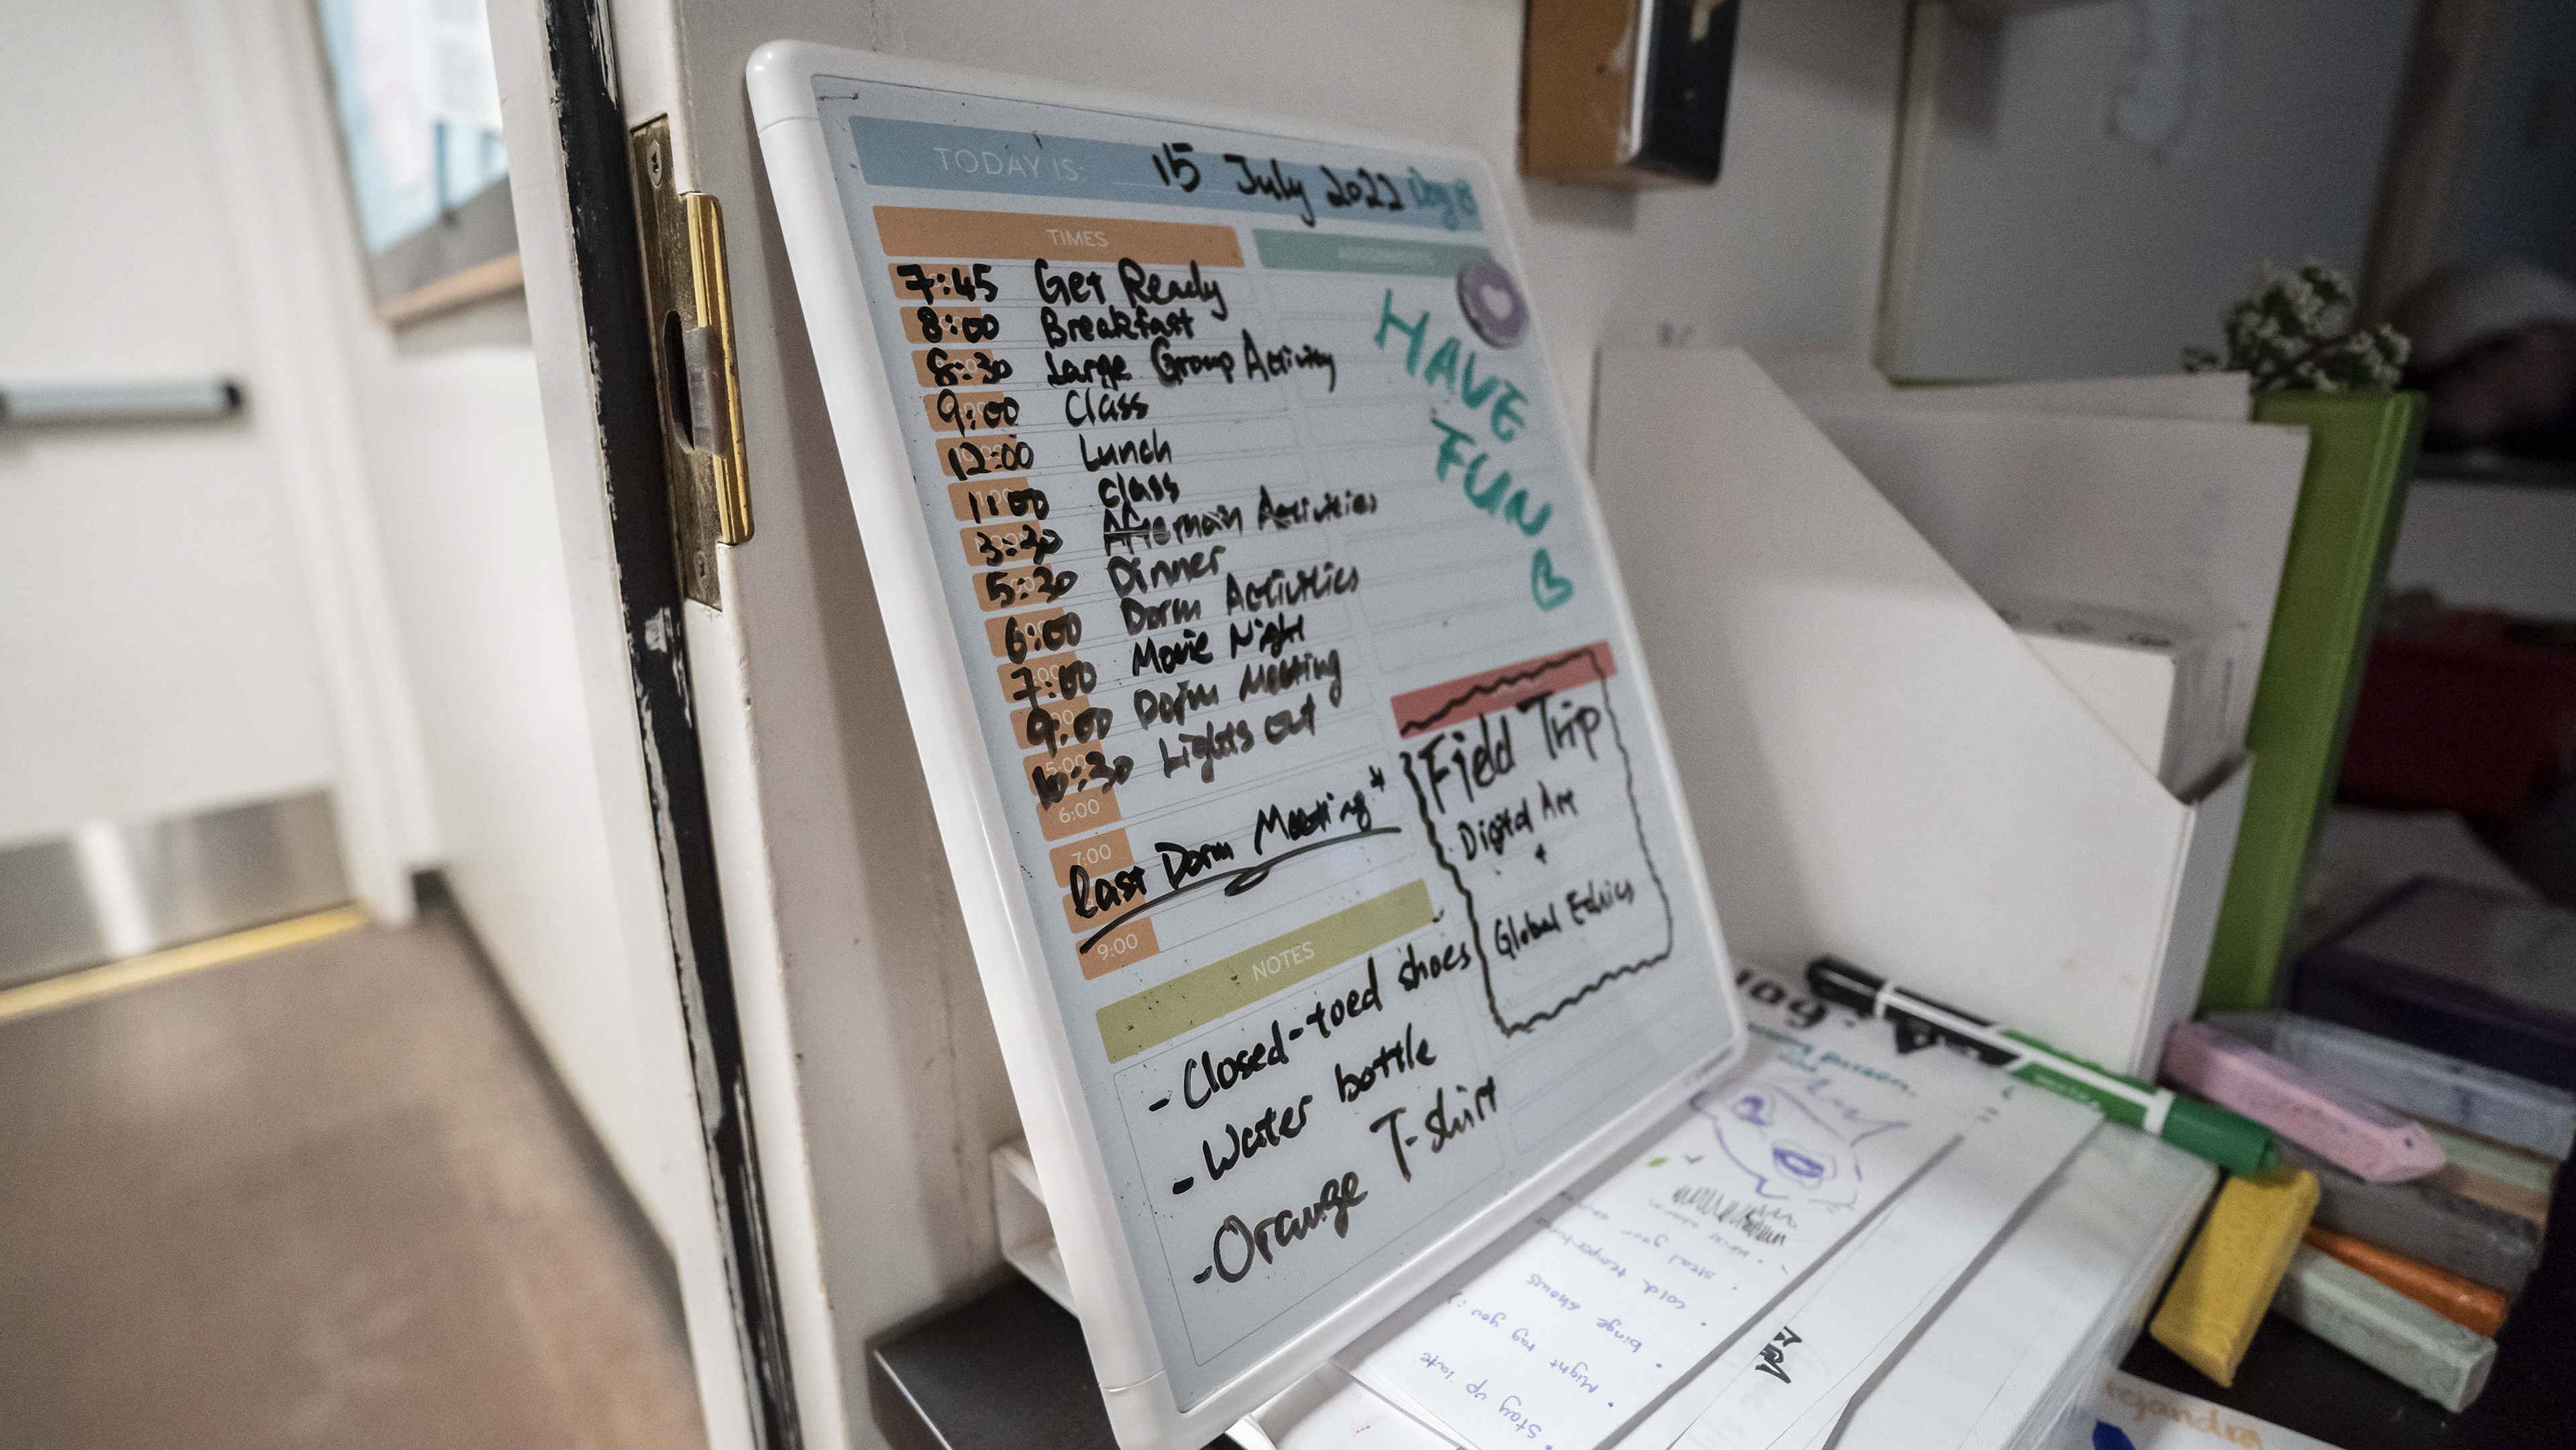 TODAY IS: 15 July 2022 Day 8
TIMES
7:45 Get Ready
8:00 Breakfast
8:30 Large Group Activity
9:00 Class
12:00 Lunch
1:00 Class
3:30 Afternoin Activities
5:30 Dinner
6:00 Dorm Activities
7:00 Movie Night
9:00 Dorm Meeting
10:30 Lights out
6:00
7:00
Last Dorm Meeting*
9:00
ASSIGNMENTS
HAVE
FUN
Field Trip
Digital Art
+
Global Ethics
NOTES
- Closed-toed shoes
- Water bottle
- Orange T-shirt
person.
• steal your
• cold temperature
• binge shows
• Might tag you :)
• Stay up late